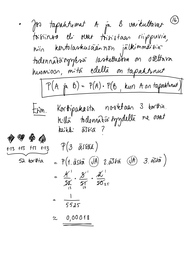 • Jos tapahtumat A ja B vaikuttavat
toisiinsa eli ovat toisistaan riippuvia,
niin kertolaskusäännön jälkimmäistä
todennäköisyyttä laskettaessa on otettava
huomioon, mitä edellä on tapahtunut
P(A ja B) = P(A) · P(B, kun A on tapahtunut)
Esim. Korttipakasta nostetaan 3 korttia
Millä todennäköisyydellä ne ovat
kaikki ässiä?
♠ ♥ ♣ ♦
13 13 13 13
52 korttia
P(3 ässää)
= P(1. ässä JA 2. ässä JA 3. ässä)
= 1/5525
≈ 0,00018